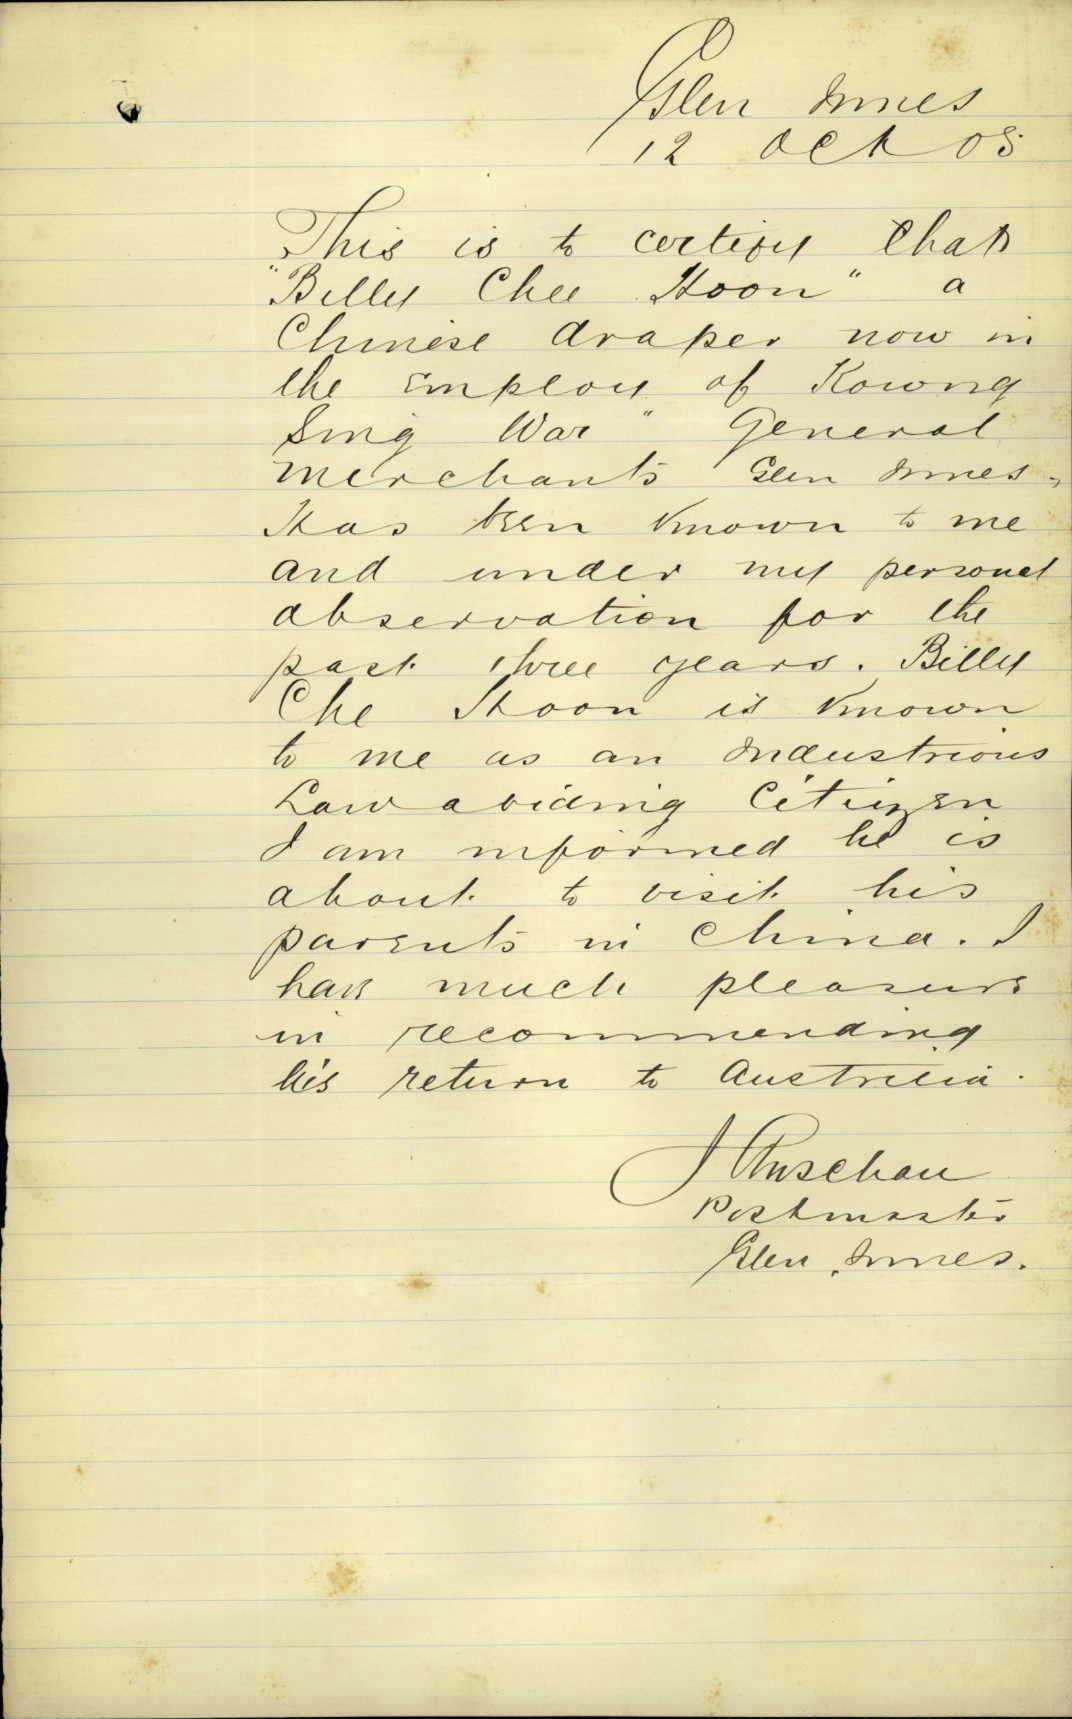 Glen Innes
12 Oct 05
This is to certify that
"Billy Chee Hoon" a
Chinese draper now in
the employ of Kowng
Sing War" General
merchants Glen Innes,
Has been known to me
and under my personal
observation for the
past three years. Billy
Che Hoon is known
to me as an Industrious
Law abiding Citizen
I am informed he is
about to visit his
parents in China. I
have much pleasure
in recommending
his return to Australia.
J
Postmaster
Glen Innes.